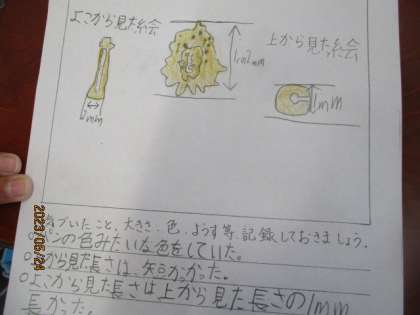 よこから見た絵
上から見た絵
1cm2mm
1mm
mm
気づいたこと、大きさ、色、ようす等記録しておきましょう。
の色みたいな色をしていた。
から見た長さは、短かかった。
○よこから見た長さは上から見た長さの1mm
長かった。
2023/05/24